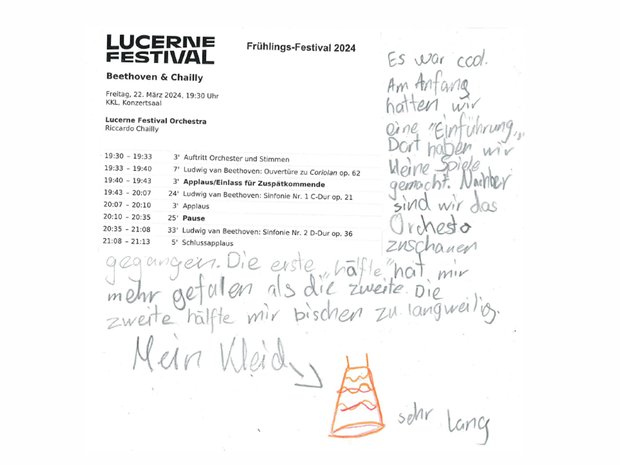 LUCERNE
FESTIVAL
Frühlings-Festival 2024
Beethoven & Chailly
Freitag, 22. März 2024, 19:30 Uhr
KKL, Konzertsaal
Lucerne Festival Orchestra
Riccardo Chailly
19:30 – 19:33 3' Auftritt Orchester und Stimmen
19:33 – 19:40 7' Ludwig van Beethoven: Ouvertüre zu Coriolan op. 62
19:40 – 19:43 3' Applaus/Einlass für Zuspätkommende
19:43 – 20:07 24' Ludwig van Beethoven: Sinfonie Nr. 1 C-Dur op. 21
20:07 – 20:10 3' Applaus
20:10 – 20:35 25' Pause
20:35 – 21:08 33' Ludwig van Beethoven: Sinfonie Nr. 2 D-Dur op. 36
21:08 – 21:13 5' Schlussapplaus
Es war cool.
Am Anfang
hatten wir
eine "Einführung„
Dort haben wir
kleine Spiele
gemacht. Nachher
sind wir das
Orchesto
zuschauen
gegangen. Die erste „hälfte" hat mir
mehr gefalen als die zweite. Die
zweite hälfte mir bischen zu langweilig.
Mein Kleid
sehr lang